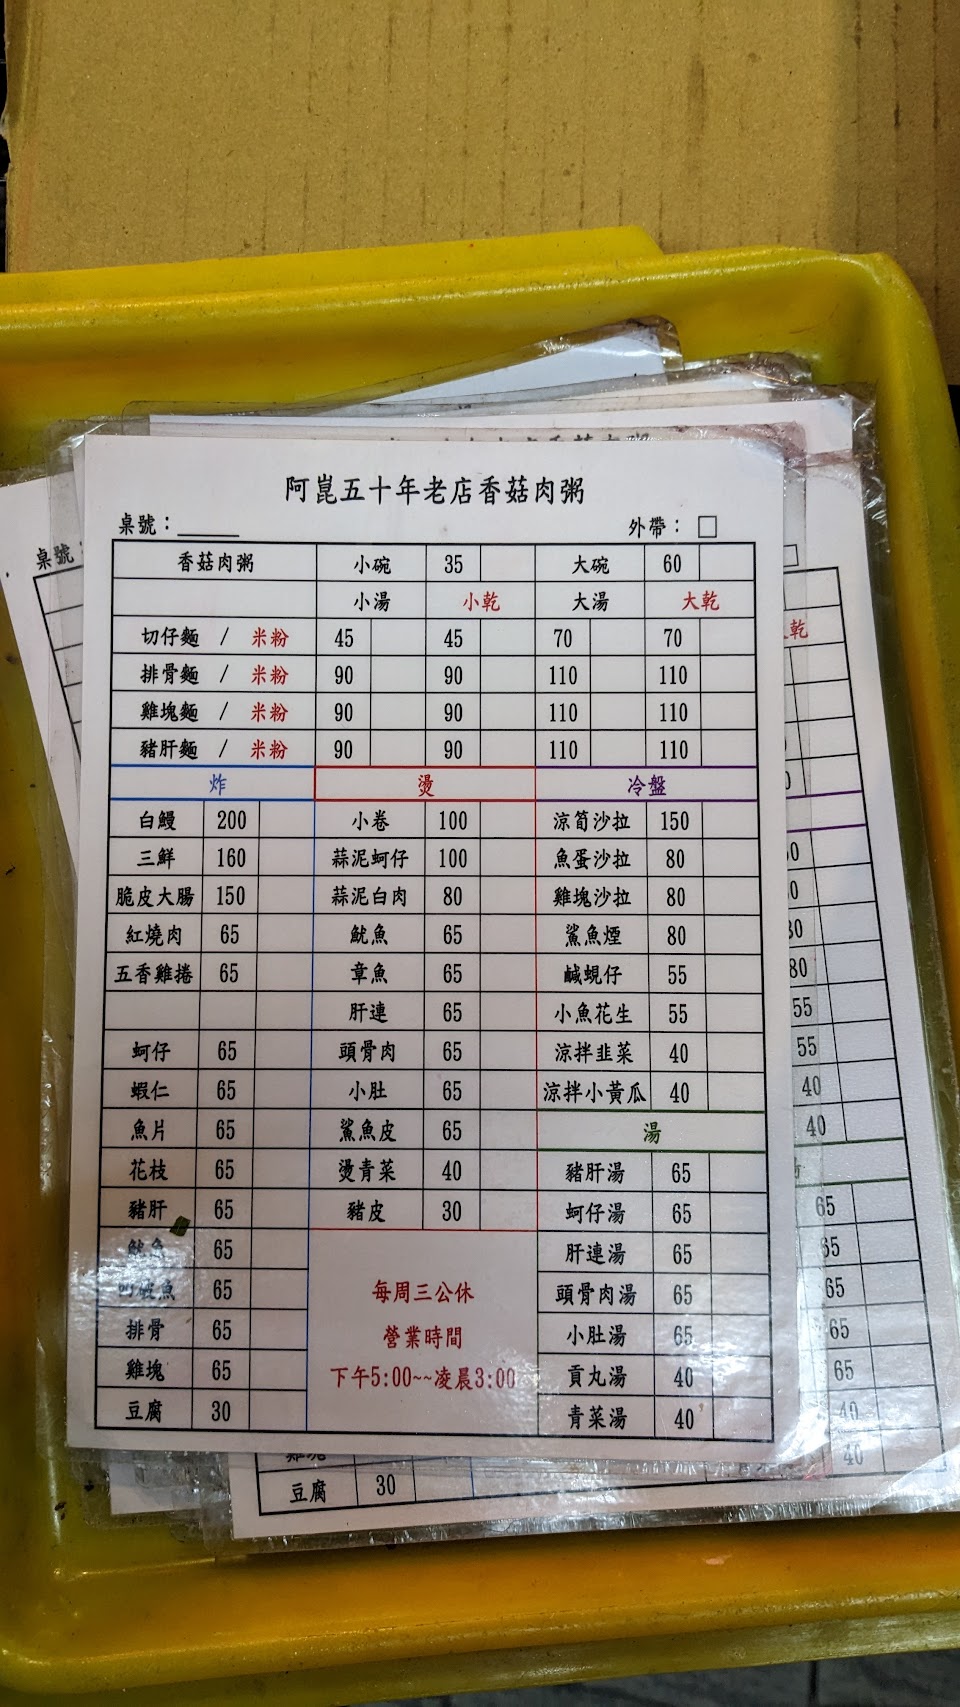 阿崑五十年老店香菇肉粥
桌號：
外帶：
香菇肉粥 小碗 35 大碗 60
小湯 小乾 大湯 大乾
切仔麵 / 米粉 45 45 70 70
排骨麵 / 米粉 90 90 110 110
雞塊麵 / 米粉 90 90 110 110
豬肝麵 / 米粉 90 90 110 110
炸 燙 冷盤
白鰻 200 小卷 100 涼筍沙拉 150
三鮮 160 蒜泥蚵仔 100 魚蛋沙拉 80
脆皮大腸 150 蒜泥白肉 80 雞塊沙拉 80
紅燒肉 65 魷魚 65 鯊魚煙 80
五香雞捲 65 章魚 65 鹹蜆仔 55
肝連 65 小魚花生 55
蚵仔 65 頭骨肉 65 涼拌韭菜 40
蝦仁 65 小肚 65 涼拌小黃瓜 40
魚片 65 鯊魚皮 65 湯
花枝 65 燙青菜 40 豬肝湯 65
豬肝 65 豬皮 30 蚵仔湯 65
魷魚 65 肝連湯 65
魚 65 每周三公休 頭骨肉湯 65
排骨 65 營業時間 小肚湯 65
雞塊 65 下午5:00~~凌晨3:00 貢丸湯 40
豆腐 30 青菜湯 40
桌號
乾
80
55
55
40
40
65
65
65
65
65
40
40
豆腐 30